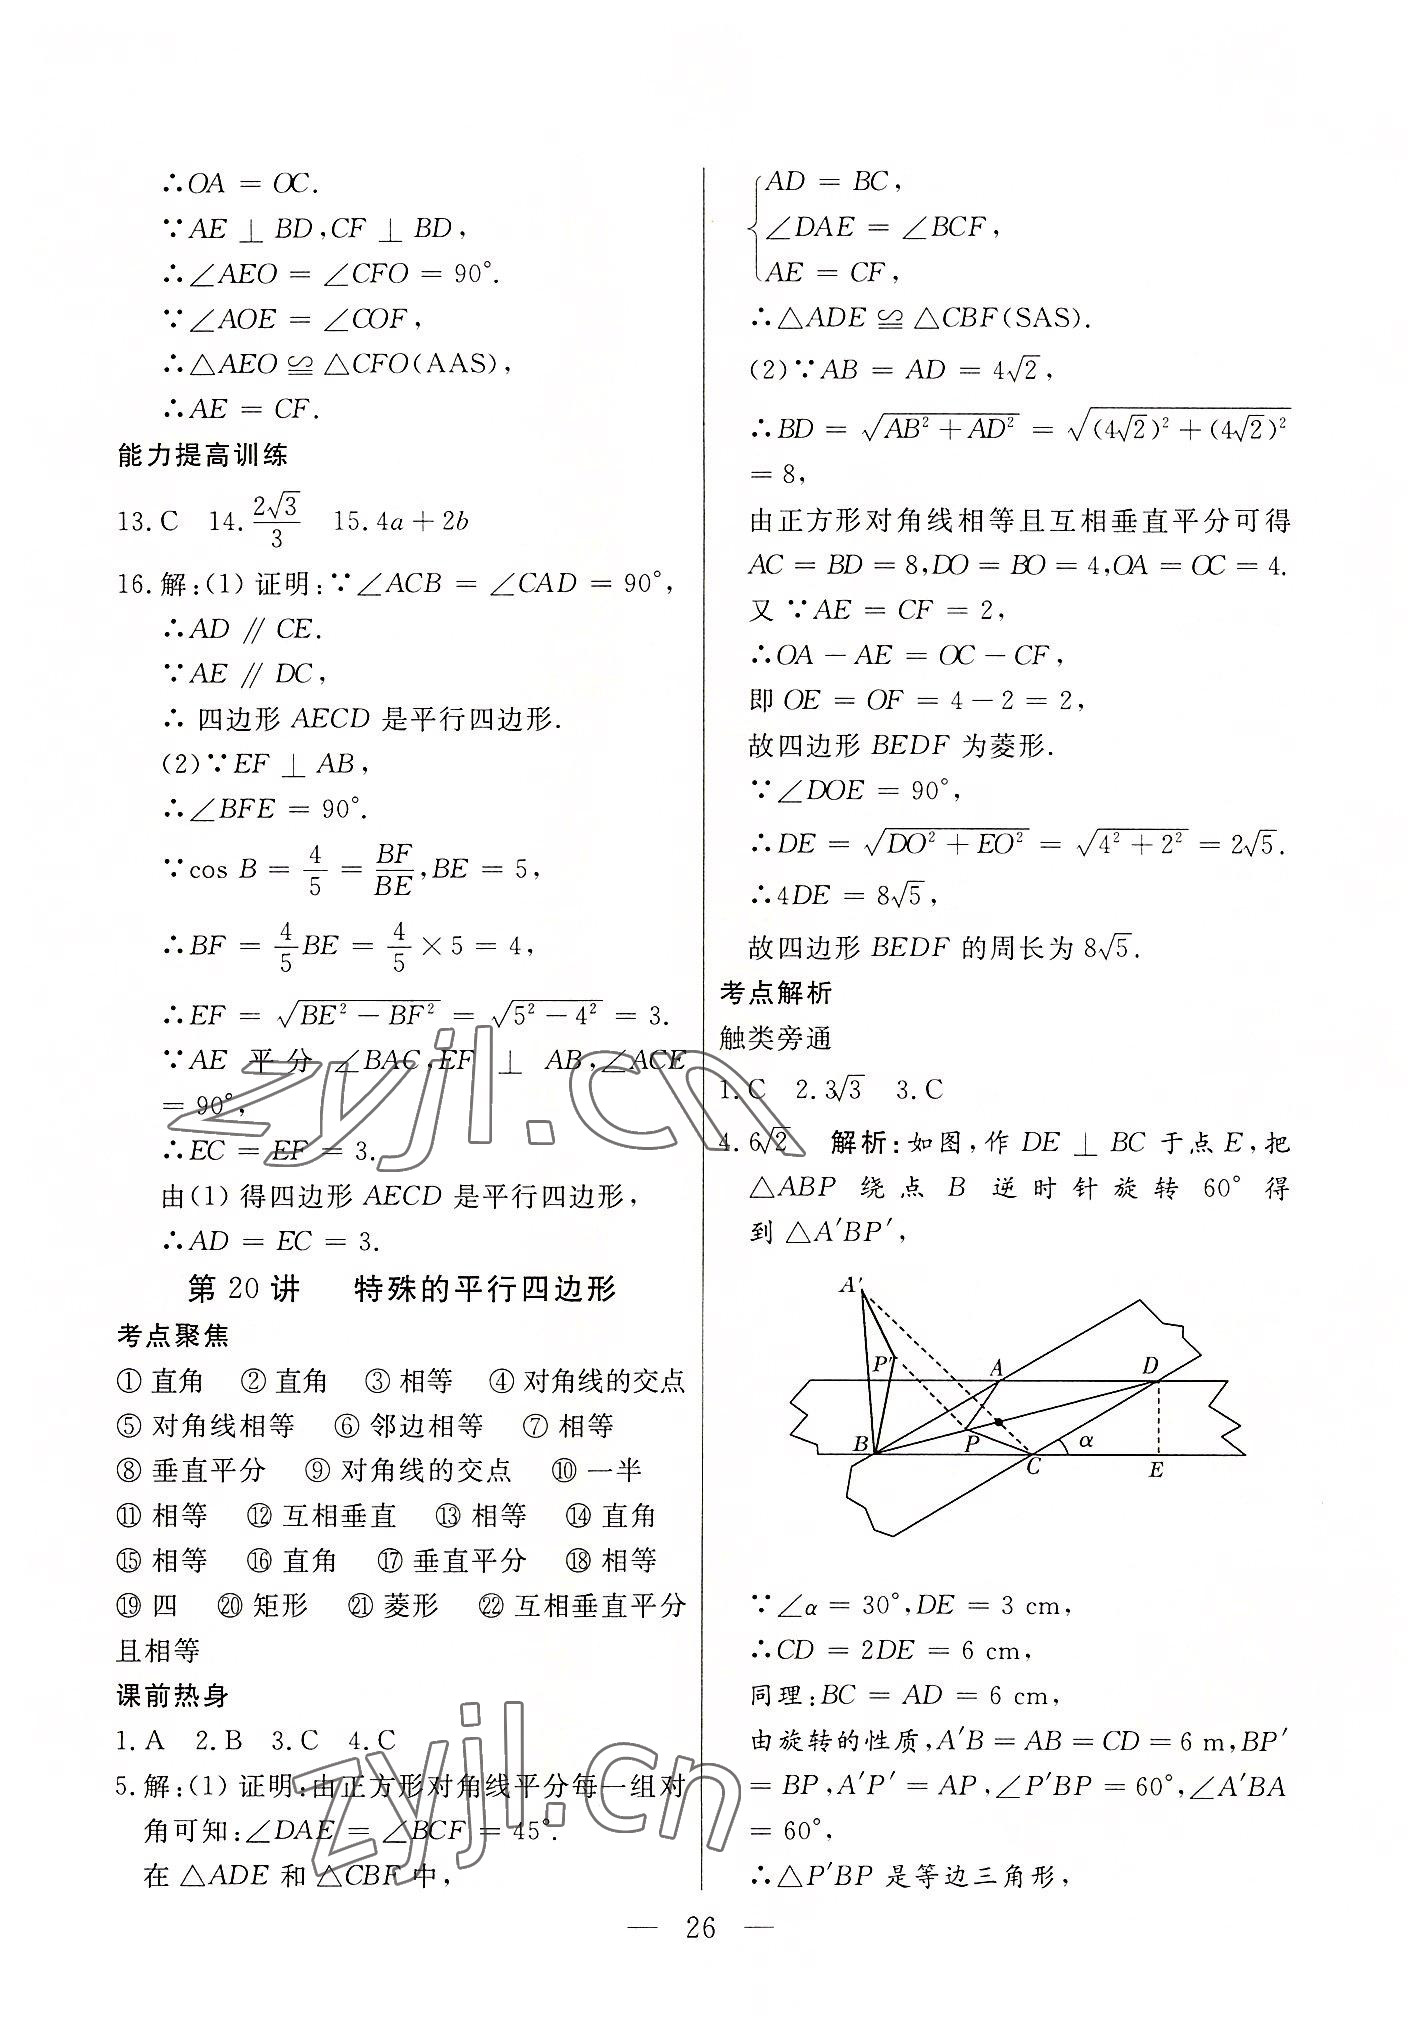 ∴OA = OC.
∵AE ⊥ BD,CF ⊥ BD,
∴∠AEO = ∠CFO = 90°.
∵∠AOE = ∠COF,
∴△AEO ≌ △CFO(AAS),
∴AE = CF.
能力提高训练
13.C 14.2√3/3 15.4a+2b
16.解:(1)证明:∵∠ACB = ∠CAD = 90°,
∴AD ∥ CE.
∵AE ∥ DC,
∴ 四边形 AECD 是平行四边形.
(2)∵EF ⊥ AB,
∴∠BFE = 90°.
∵cos B = 4/5 = BF/BE,BE = 5,
∴BF = 4/5BE = 4/5×5 = 4,
∴EF = √(BE²-BF²) = √(5²-4²) = 3.
∵AE 平分 ∠BAC,EF ⊥ AB,∠ACE
= 90°,
∴EC = EF = 3.
由(1)得四边形 AECD 是平行四边形,
∴AD = EC = 3.
第 20 讲 特殊的平行四边形
考点聚焦
① 直角 ② 直角 ③ 相等 ④ 对角线的交点
⑤ 对角线相等 ⑥ 邻边相等 ⑦ 相等
⑧ 垂直平分 ⑨ 对角线的交点 ⑩ 一半
⑪ 相等 ⑫ 互相垂直 ⑬ 相等 ⑭ 直角
⑮ 相等 ⑯ 直角 ⑰ 垂直平分 ⑱ 相等
⑲ 四 ⑳ 矩形 ㉑ 菱形 ㉒ 互相垂直平分
且相等
课前热身
1.A 2.B 3.C 4.C
5.解:(1)证明:由正方形对角线平分每一组对
角可知:∠DAE = ∠BCF = 45°.
在 △ADE 和 △CBF 中,
AD = BC,
∠DAE = ∠BCF,
AE = CF,
∴△ADE ≌ △CBF(SAS).
(2)∵AB = AD = 4√2,
∴BD = √(AB²+AD²) = √((4√2)²+(4√2)²)
= 8,
由正方形对角线相等且互相垂直平分可得
AC = BD = 8,DO = BO = 4,OA = OC = 4.
又 ∵AE = CF = 2,
∴OA-AE = OC-CF,
即 OE = OF = 4-2 = 2,
故四边形 BEDF 为菱形.
∵∠DOE = 90°,
∴DE = √(DO²+EO²) = √(4²+2²) = 2√5.
∴4DE = 8√5,
故四边形 BEDF 的周长为 8√5.
考点解析
触类旁通
1.C 2.3√3 3.C
4.6√2 解析:如图,作 DE ⊥ BC 于点 E,把
△ABP 绕点 B 逆时针旋转 60° 得
到 △A′BP′,
A′
P′ A D
B P C α E
∵∠α = 30°,DE = 3 cm,
∴CD = 2DE = 6 cm,
同理:BC = AD = 6 cm,
由旋转的性质,A′B = AB = CD = 6 m,BP′
= BP,A′P′ = AP,∠P′BP = 60°,∠A′BA
= 60°,
∴△P′BP 是等边三角形,
— 26 —
zyjl.cn
zyjl.cn